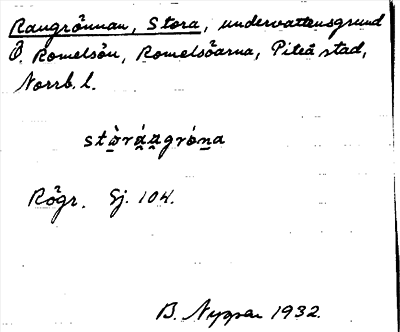 Raugrönnan, Stora, undervattensgrund
Ö. Romelsön, Romelsöarna, Piteå stad,
Norrb. l.
stò̱rá̱a̱gróṉa
Rögr. Sj. 104.
B. Nyman 1932.